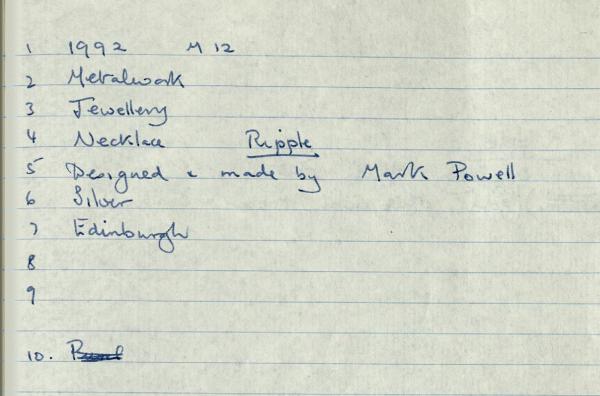 1 1992 M 12
2 Metalwork
3 Jewellery
4 Necklace Ripple
5 Designed & made by Mark Powell
6 Silver
7 Edinburgh
8
9
10.